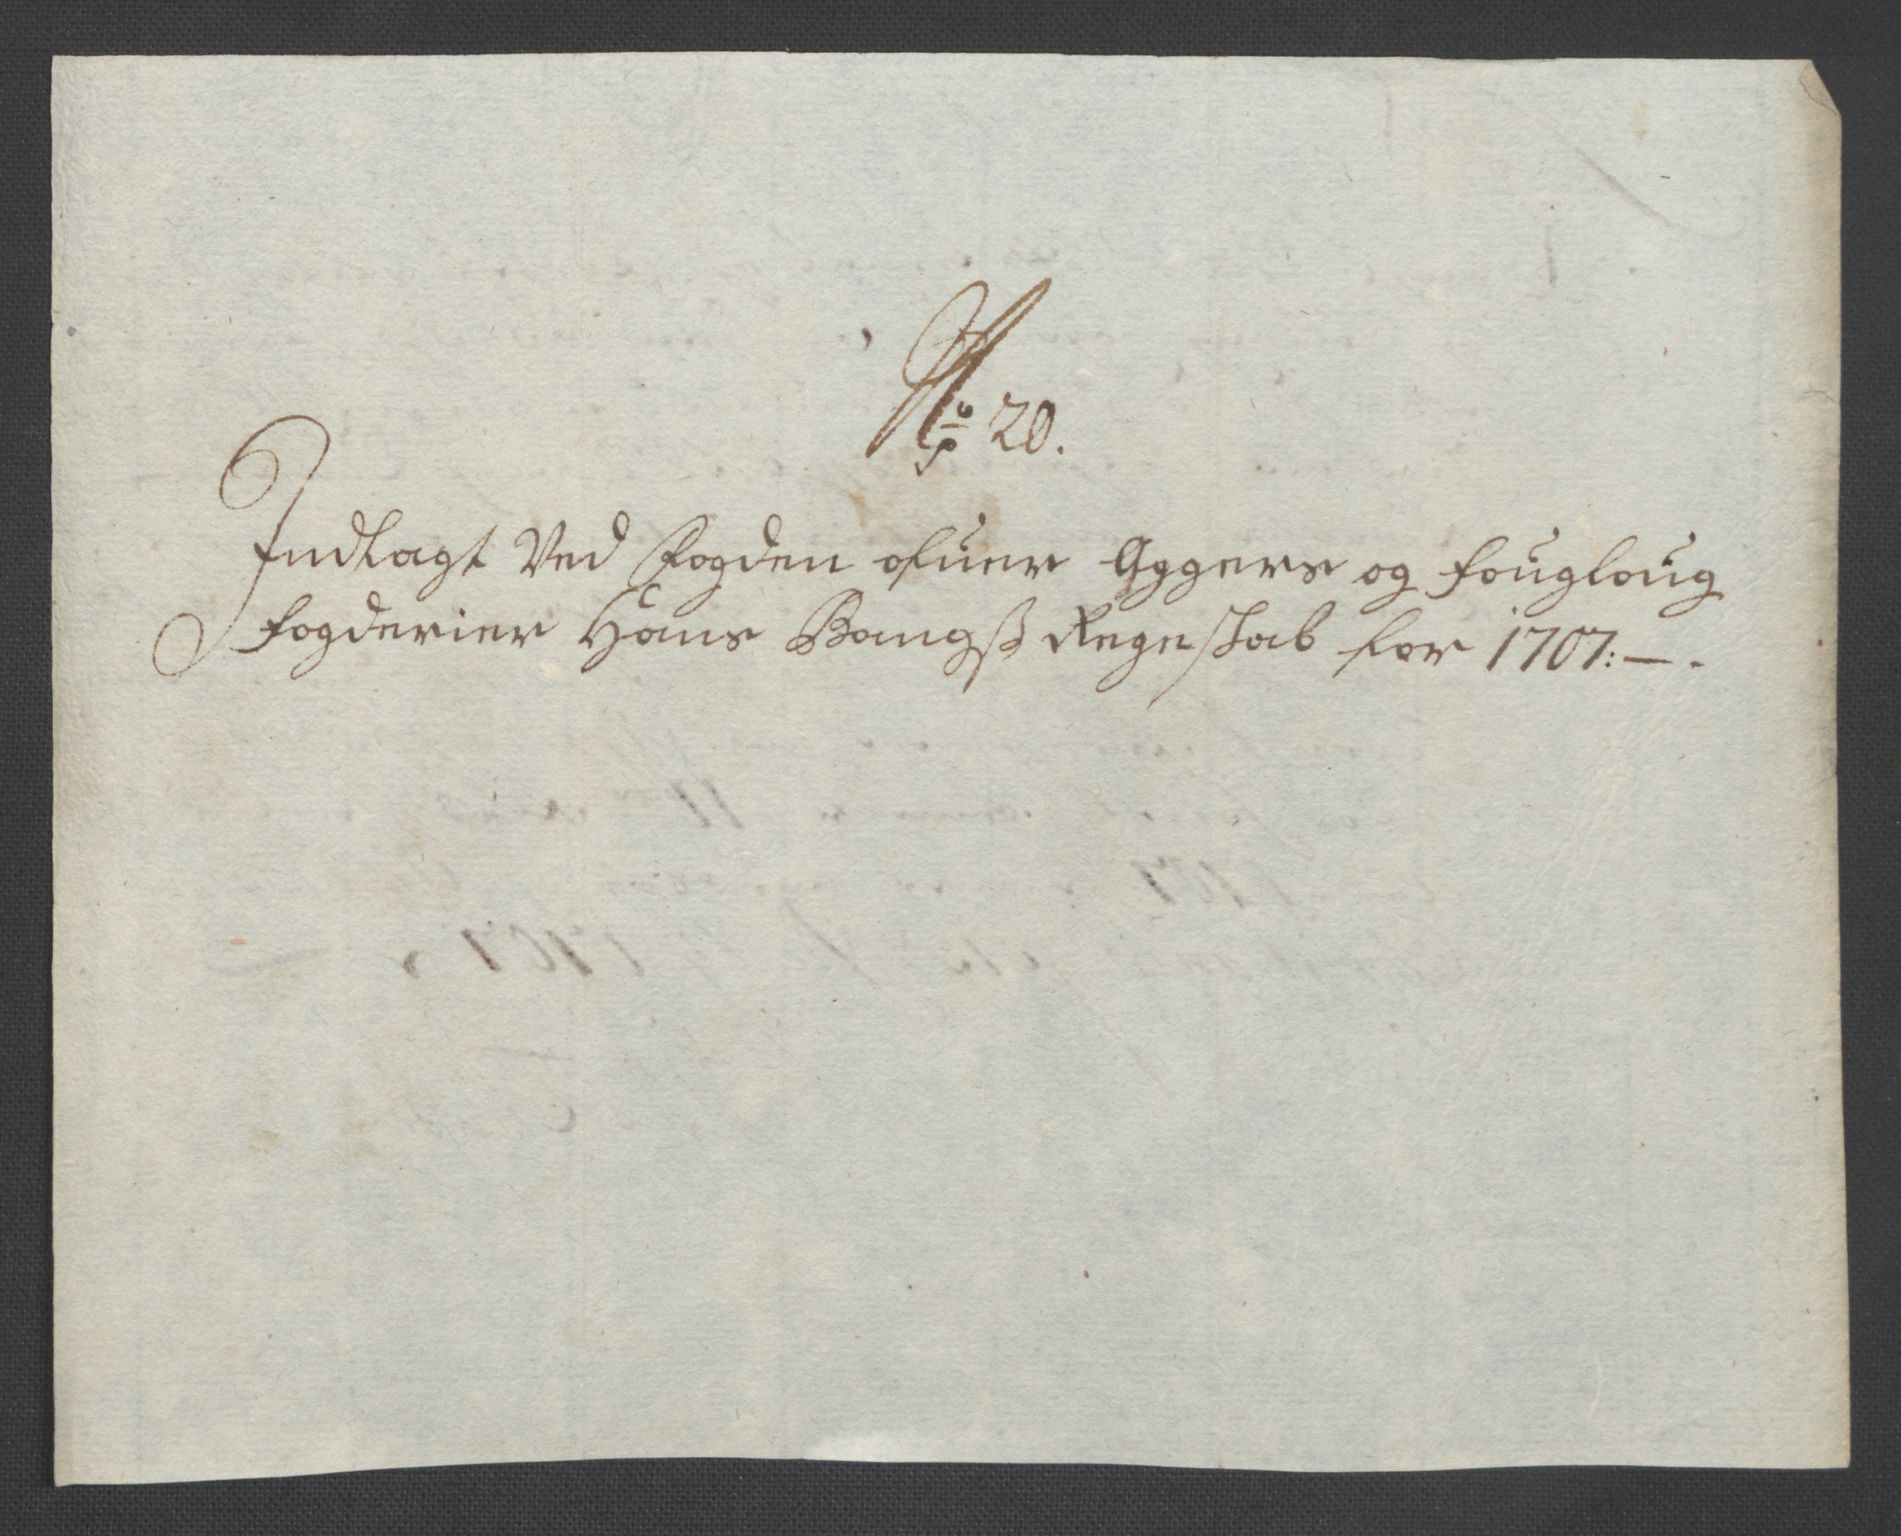 No 20.
Indlagt Ved Fogden ofuer Aggers og Fougloug
Fogderier Hans Bangß Regenskab for 1707:—.